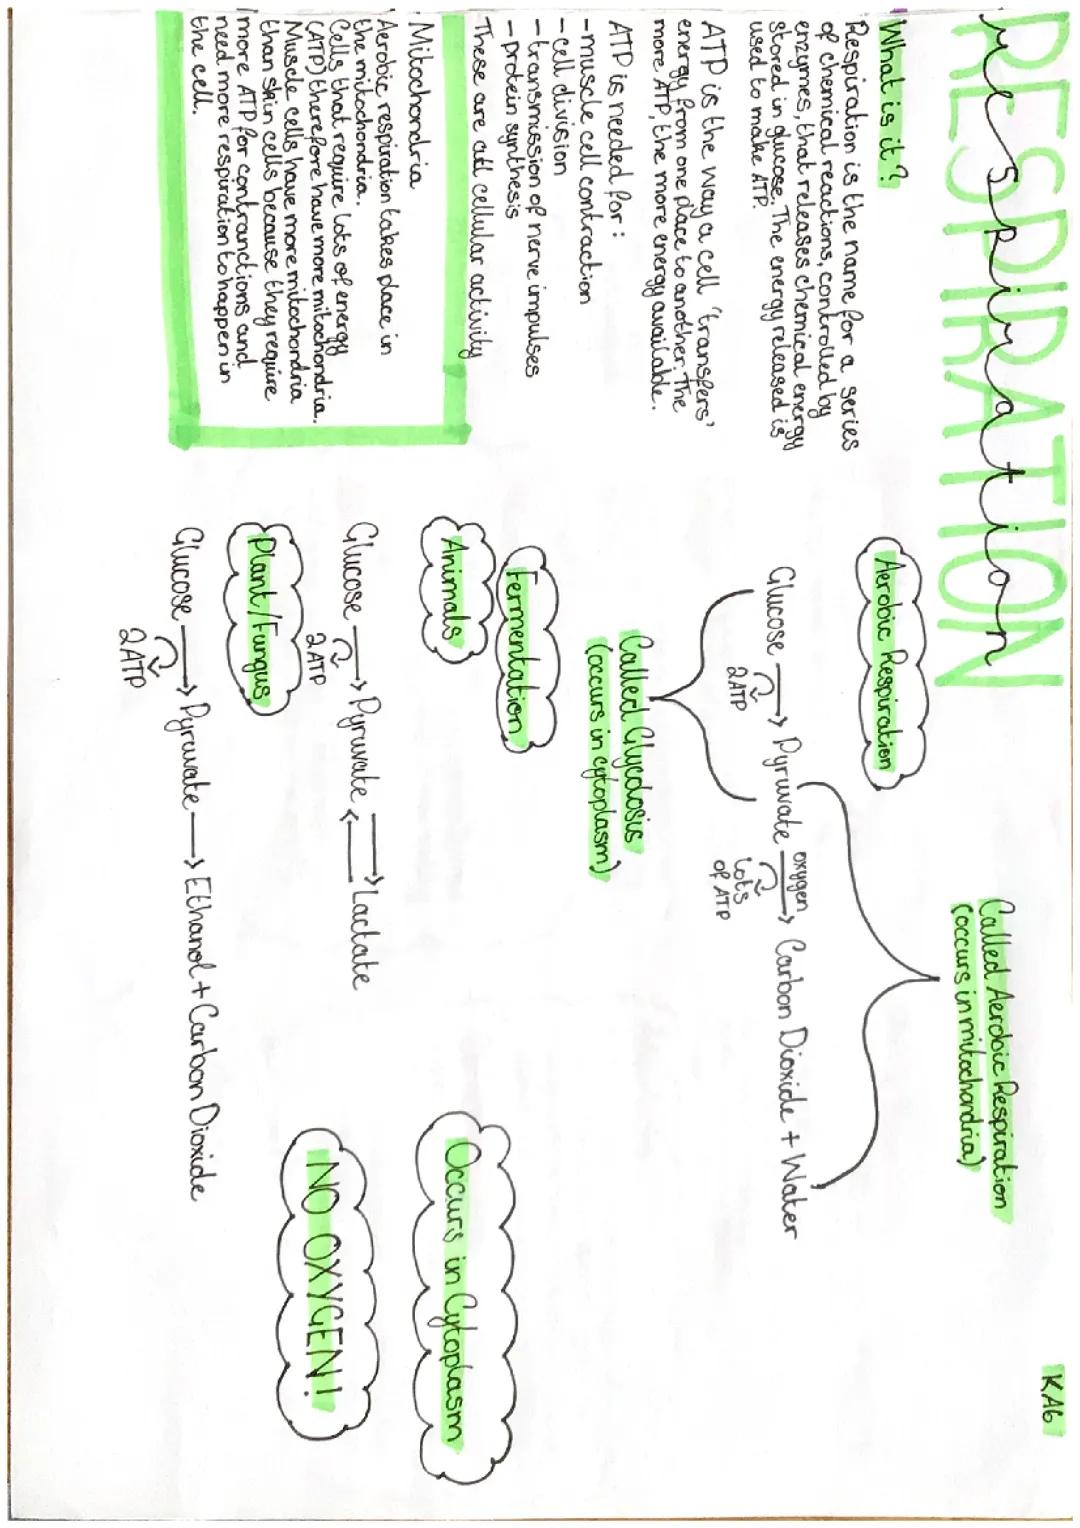 RESPIRATION
respiration
KA6
What is it?
Respiration is the name for a series
of chemical reactions, controlled by
enzymes, that releases chemical energy
stored in glucose. The energy released is
used to make ATP.
ATP is the way a cell 'transfers'
energy from one place to another. The
more ATP, the more energy available.
ATP is needed for:
- muscle cell contraction
- cell division
- transmission of nerve impulses
- protein synthesis
These are all cellular activity
Mitochondria
Aerobic respiration takes place in
the mitochondria.
Cells that require lots of energy
(ATP) therefore have more mitochondria.
Muscle cells have more mitochondria
than skin cells because they require
more ATP for contranctions and
need more respiration to happen in
the cell.
Called Aerobic Respiration
(occurs in mitochondria)
Aerobic Respiration
Glucose → Pyruvate oxygen → Carbon Dioxide + Water
2ATP
lots
of ATP
Called Glycolosis
(occurs in cytoplasm)
Fermentation
Animals
Glucose → Pyruvate ⇄ Lactate
2ATP
Plant/Fungus
Glucose → Pyruvate → Ethanol + Carbon Dioxide
2ATP
Occurs in Cytoplasm
NO OXYGEN!